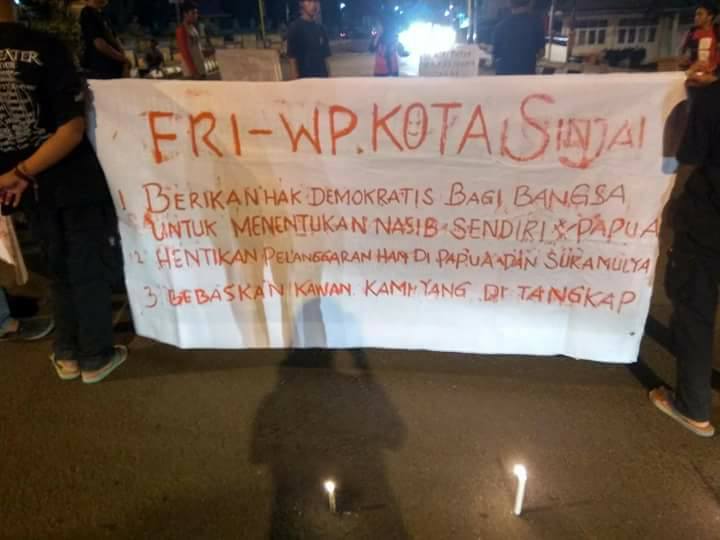 EATER
FRI-WP.KOTA SINJAI
1 BERIKAN HAK DEMOKRATIS BAGI BANGSA
UNTUK MENENTUKAN NASIB SENDIRI PAPUA
2 HENTIKAN PELANGGARAN HAM DI PAPUA DAN SURAMULYA
3 BEBASKAN KAWAN KAMI YANG DI TANGKAP